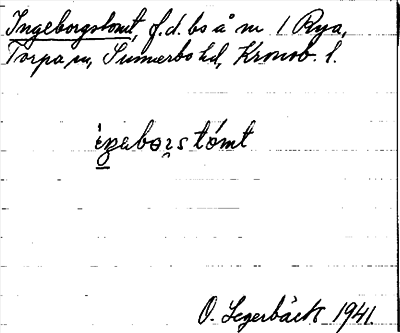 Ingeborgstomt, f.d. bs å nr 1 Rya,
Torpa sn, Sunnerbo hd, Kronob. l.
ìŋaborstómt
O. Segerbäck 1941.